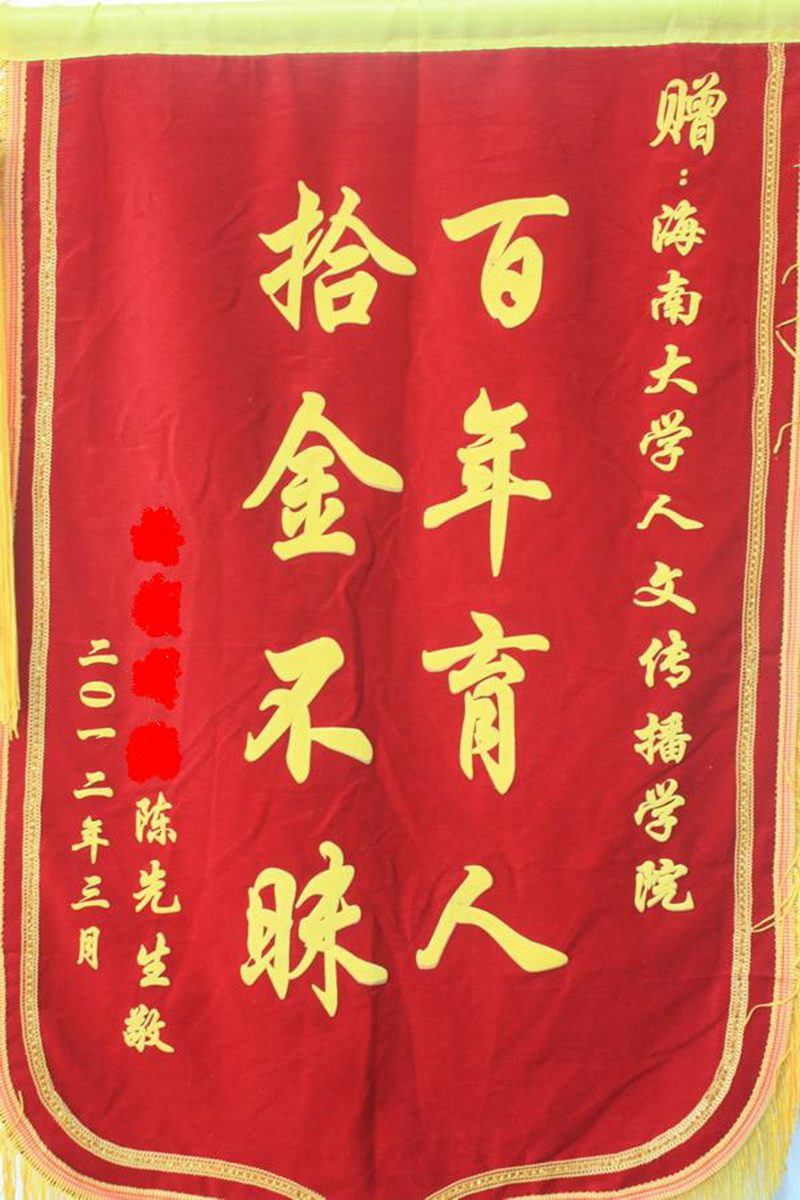 赠:海南大学人文传播学院
百年育人
拾金不昧
陈先生敬
二〇一二年三月